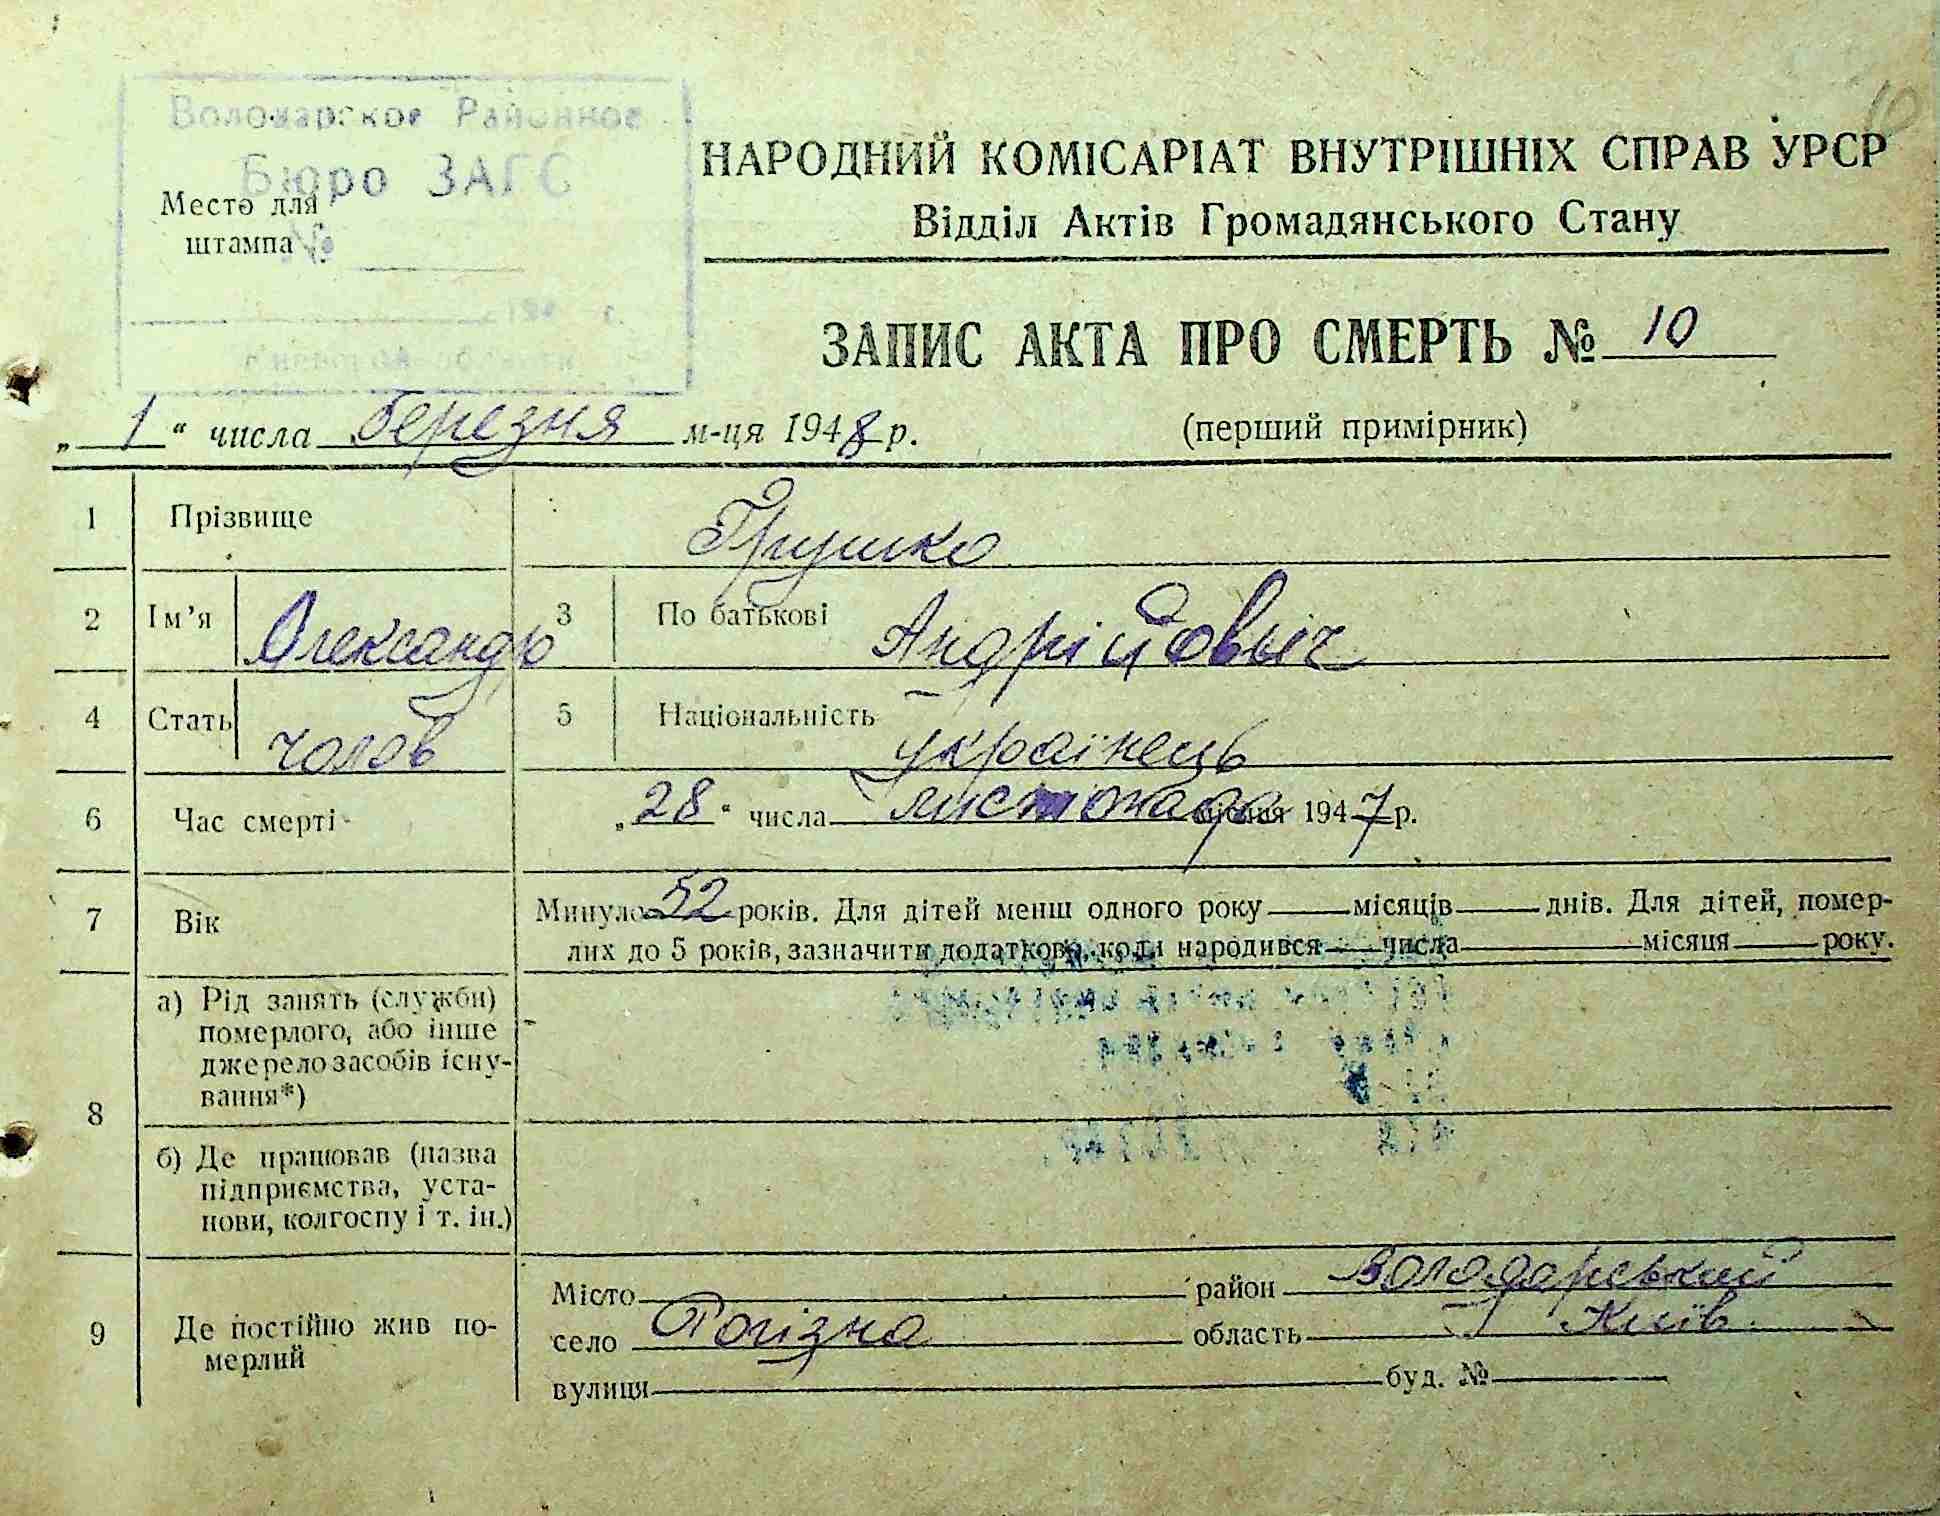 10
Володарское Районное
Бюро ЗАГС
Место для
штампа №
194 г.
Киевской области
НАРОДНИЙ КОМІСАРІАТ ВНУТРІШНІХ СПРАВ УРСР
Відділ Актів Громадянського Стану
ЗАПИС АКТА ПРО СМЕРТЬ № 10
„ 1 “ числа березня м-ця 1948 р. (перший примірник)
1 Прізвище Грушко
2 Ім’я Олександр 3 По батькові Андрійовыч
4 Стать чолов 5 Національність українець
6 Час смерті „28“ числа листопада місяця 1947 р.
7 Вік Минуло 52 років. Для дітей менш одного року місяців днів. Для дітей, помер-
лих до 5 років, зазначити додатково, коли народився числа місяця року.
8 а) Рід занять (служби)
померлого, або інше
джерело засобів існу-
вання*)
б) Де працював (назва
підприємства, уста-
нови, колгоспу і т. ін.)
9 Де постійно жив по-
мерлий
Місто район Володарський
село Рогізна область Київ.
вулиця буд. №